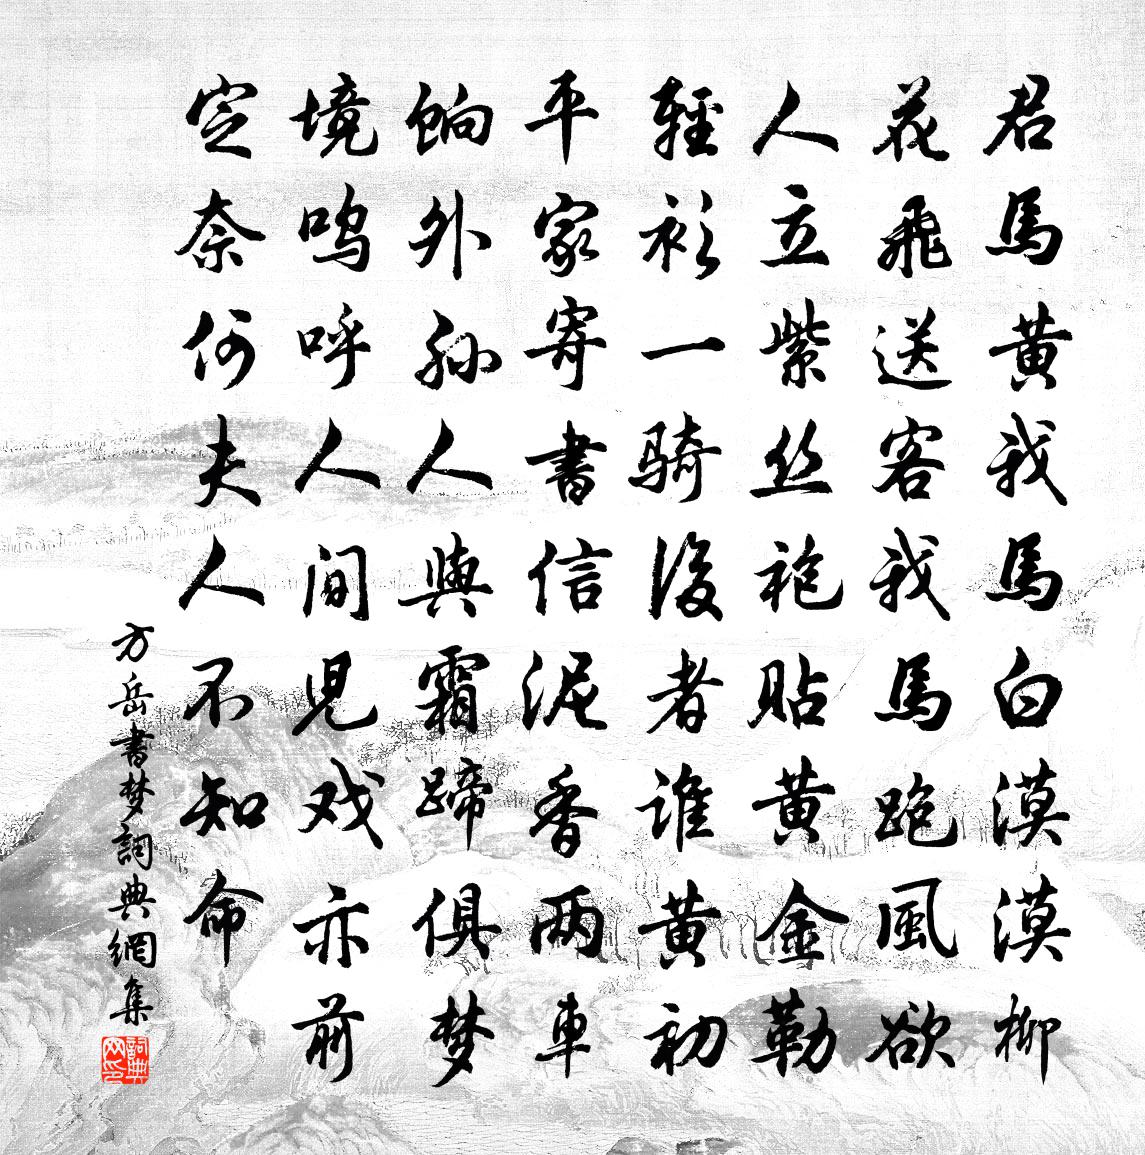 君馬黄我馬白漠漠柳
花飛送客我馬跑風欲
人立紫丝袍貼黄金勒
輕衫一骑後者誰黄初
平家寄書信泥香两車
餉外孫人與霜蹄俱梦
境呜呼人間児戏亦前
定奈何夫人不知命
方岳書梦詞典網集
詞典网印